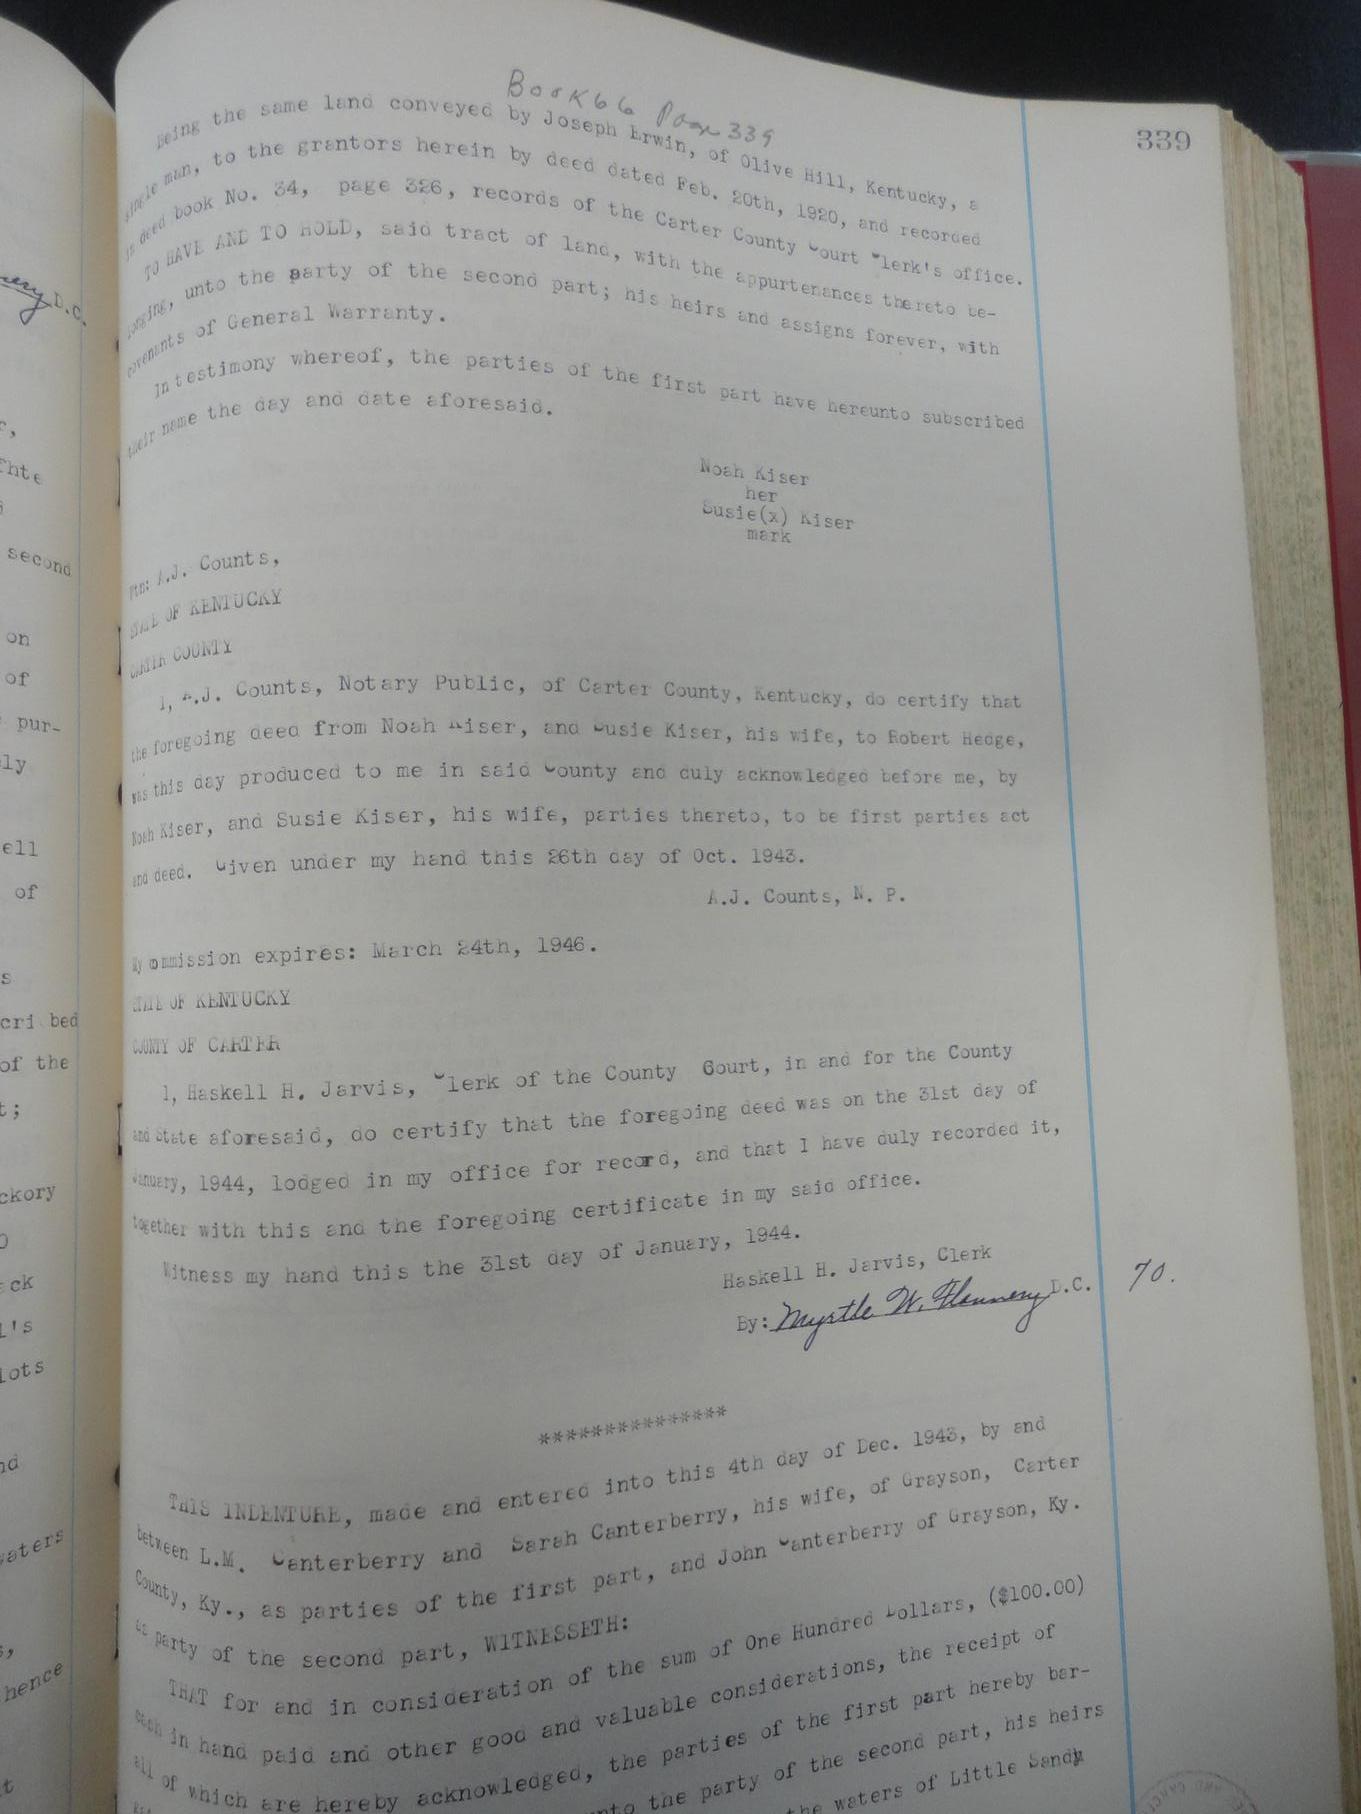 Book 66 Page 339
339
Being the same land conveyed by Joseph Erwin, of Olive Hill, Kentucky, a
single man, to the grantors herein by deed dated Feb. 20th, 1920, and recorded
in deed book No. 34, page 326, records of the Carter County Court Clerk's office.
TO HAVE AND TO HOLD, said tract of land, with the appurtenances thereto be-
longing, unto the party of the second part; his heirs and assigns forever, with
covenants of General Warranty.
In testimony whereof, the parties of the first part have hereunto subscribed
their name the day and date aforesaid.
Noah Kiser
her
Susie(x) Kiser
mark
Wtn: A.J. Counts,
STATE OF KENTUCKY
CARTER COUNTY
I, A.J. Counts, Notary Public, of Carter County, Kentucky, do certify that
the foregoing deed from Noah Kiser, and Susie Kiser, his wife, to Robert Hedge,
was this day produced to me in said County and duly acknowledged before me, by
Noah Kiser, and Susie Kiser, his wife, parties thereto, to be first parties act
and deed. Given under my hand this 26th day of Oct. 1943.
A.J. Counts, N. P.
My commission expires: March 24th, 1946.
STATE OF KENTUCKY
COUNTY OF CARTER
I, Haskell H. Jarvis, Clerk of the County Court, in and for the County
and State aforesaid, do certify that the foregoing deed was on the 31st day of
January, 1944, lodged in my office for record, and that I have duly recorded it,
together with this and the foregoing certificate in my said office.
Witness my hand this the 31st day of January, 1944.
Haskell H. Jarvis, Clerk
By: Myrtle W. Flannery D.C.
70.
***************
THIS INDENTURE, made and entered into this 4th day of Dec. 1943, by and
between L.M. Canterberry and Sarah Canterberry, his wife, of Grayson, Carter
County, Ky., as parties of the first part, and John Canterberry of Grayson, Ky.
as party of the second part, WITNESSETH:
THAT for and in consideration of the sum of One Hundred Dollars, ($100.00)
cash in hand paid and other good and valuable considerations, the receipt of
all of which are hereby acknowledged, the parties of the first part hereby bar-
unto the party of the second part, his heirs
the waters of Little Sandy
D.C.
second
on
of
pur-
ly
ell
of
s
cribed
of the
t;
ckory
ck
l's
lots
nd
waters
hence
t